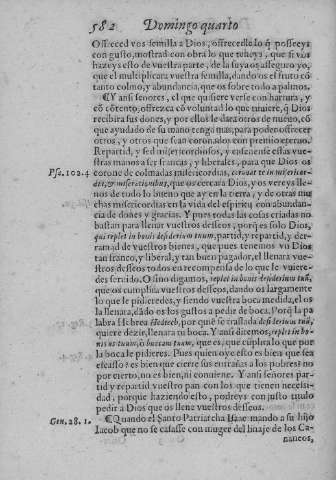 582 Domingo quarto
Offreced vos semilla a Dios, offrecedle lo q̃ posseeys
con gusto, mostrad con obra lo que teneys, que si vos
hazeys esto de vuestra parte, de la suya os asseguro yo,
que el multiplicara vuestra semilla, dando os el fruto cõ
tanto colmo, y abundancia, que os sobre todo a palmos.
¶ Y ansi señores, el que quisiere verse con hartura, y
cõ cõtento, offrezca cõ voluntad lo que tuuiere, q̃ Dios
recibira sus dones, y por ellos le dara otros de nueuo, cõ
que ayudado de su mano tenga mas, para poder offrecer
otros, y otros que sean coronados con premio eterno.
Repartid, y sed misericordiosos, y enseñense estas vue-
stras manos a ser francas, y liberales, para que Dios os
Psa. 102.4 corone de colmadas misericordias, coronat te in misericor-
dia, & miserationibus, que os cerca a Dios, y os vereys lle-
nos de todo lo bueno que ay en la tierra, y de otras mu
chas misericordias en la vida del espiritu con abundan-
cia de dones y gracias. Y pues todas las cosas criadas no
bastan para llenar vuestros desseos, porq̃ es solo Dios,
qui replet in bonis desiderium tuum, partid, y repartid, y der-
ramad de vuestros bienes, que pues tenemos vn Dios
tan franco, y liberal, y tan buen pagador, el llenara vue-
stros desseos todos en recompensa de lo que le vuiere-
des seruido. O sino digamos, replet in bonis desiderium tuũ,
que os cumplira vuestros desseos, dando os largamente
lo que le pidieredes, y siendo vuestra boca medida, el os
la llenara, dãdo os los gustos a pedir de boca. Porq̃ la pa
labra Hebrea que se traslada desiderium tuũ,
quiere dezir, llenara tu boca. Y ansi diremos, replet in bo-
nis os tuum, & buccam tuam, que es, que cũplira lo que por
la boca le pidieres. Pues quien oye esto es bien que sea
escasso? es bien que cierre sus entrañas a los pobres? no
por cierto, no es bien, ni conuiene. Y ansi señores par-
tid y repartid vuestro pan con los que tienen necessi-
dad, porque haziendo esto, podreys con justo titulo
pedir a Dios que os llene vuestros desseos.
Gen. 28. 1. ¶ Quando el Santo Patriarcha Isaac mando a su hijo
Iacob que no se casasse con muger del linaje de los Ca-
naneos,